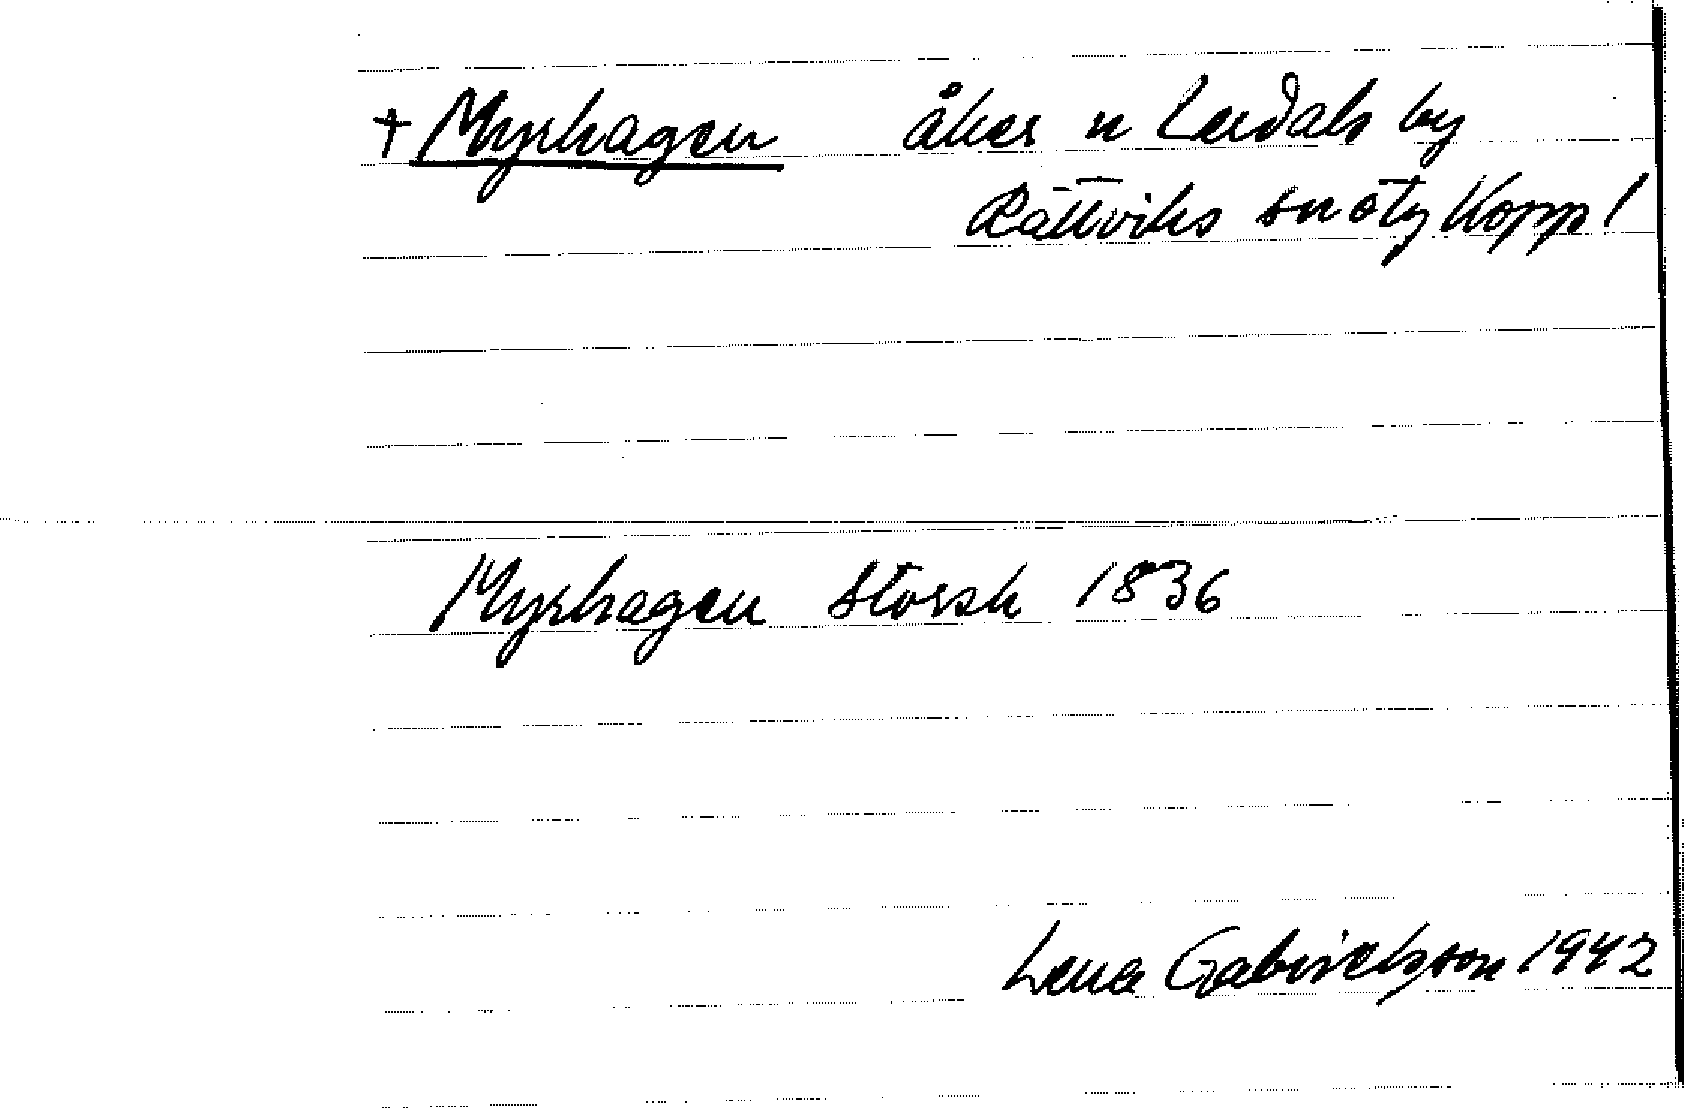 † Myrhagen åker n Lerdals by
Rättviks sn öty Kopp l
Myrhagen Storsk 1836
Lena Gabrielsson 1942